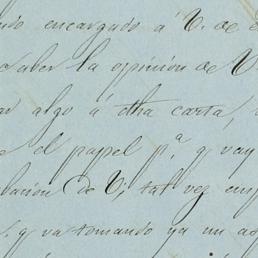 encargado á V. de
saber la opinión de V
algo á dha carta,
el papel p.ª q vay
de V, tal vez
q va tomando ya un as